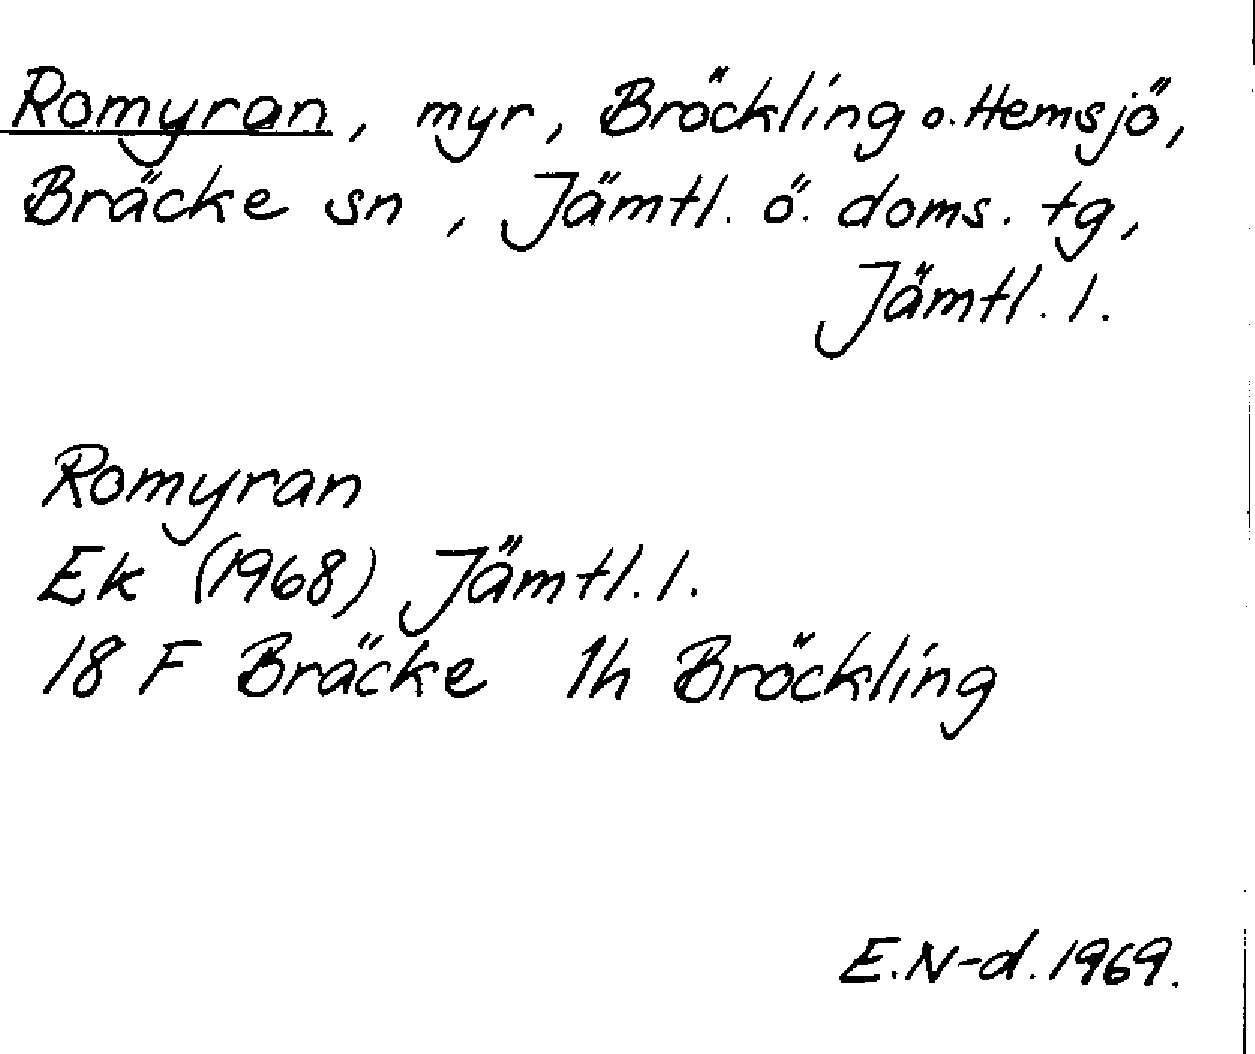 Romyran, myr, Bröckling o. Hemsjö,
Bräcke sn, Jämtl. ö. doms. tg,
Jämtl. l.
Romyran
Ek (1968) Jämtl. l.
18 F Bräcke 1h Bröckling
E.N-d. 1969.